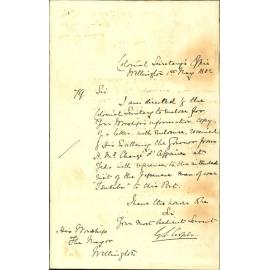 Colonial Secretary's Office
Wellington 1st May 1882
Sir
I am directed by the
Colonial Secretary to enclose for
Your Worship's information copy
of a letter with enclosure, received
by His Excellency the Governor from
H. M. Chargé d'Affaires at
with reference to the intended
visit of the Japanese man of war
to this Port.
I have the honor to be
Sir
Your most obedient Servant
G.S. Cooper
His Worship
The Mayor
Wellington